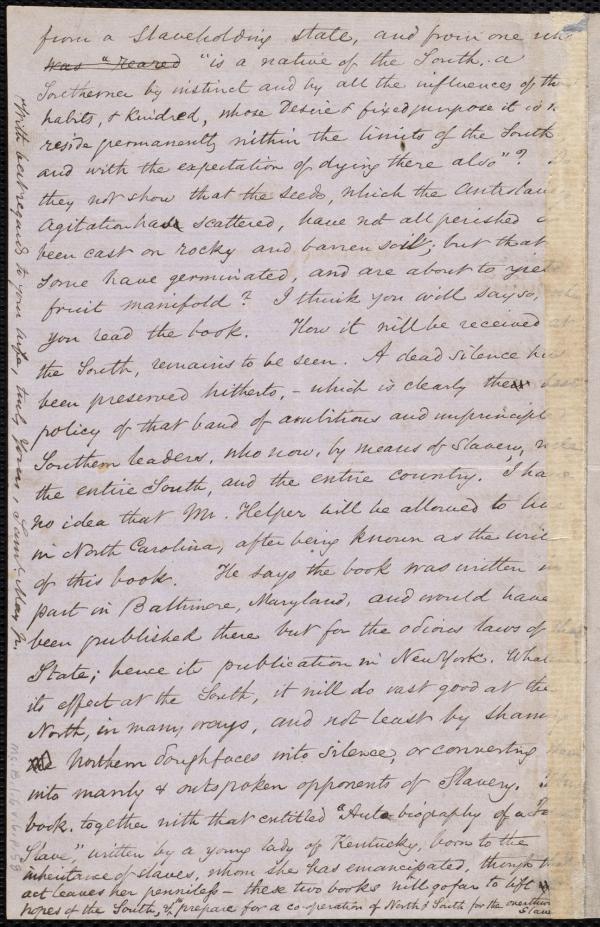 from a Slaveholding State, and from one who
was "reared "is a native of the South, a
Southerner by instinct and by all the influences of
habits, & kindred, whose Desire & fixed purpose it is
reside permanently within the limits of the South
and with the expectation of dying there also"?
they not show that the seeds, which the Antislavery
Agitation have scattered, have not all perished
been cast on rocky and barren soil; but that
some have germinated, and are about to yield
fruit manifold? I think you will say so,
you read the book. How it will be received at
the South, remains to be seen. A dead silence has
been preserved hitherto, - which is clearly the
policy of that band of ambitious and unprincipled
Southern leaders, who now, by means of Slavery, rule
the entire South, and the entire country. I have
no idea that Mr. Helper will be allowed to live
in North Carolina, after being known as the writer
of this book. He says the book was written in
part in Baltimore, Maryland, and would have
been published there but for the odious laws of that
State; hence its publication in New York. Whatever
its effect at the South, it will do vast good at the
North, in many ways, and not least by shaming
Northern doughfaces into silence, or converting them
into manly & outspoken opponents of Slavery.
book, together with that entitled "Autobiography of a
Slave," written by a young lady of Kentucky, born to the
inheritance of slaves, whom she has emancipated, though the
act leaves her penniless - these two books will go far to lift
hopes of the South, & prepare for a co-operation of North & South for the overthrow
Slave
With best regards to your wife, truly Yours, Saml. May Jr.